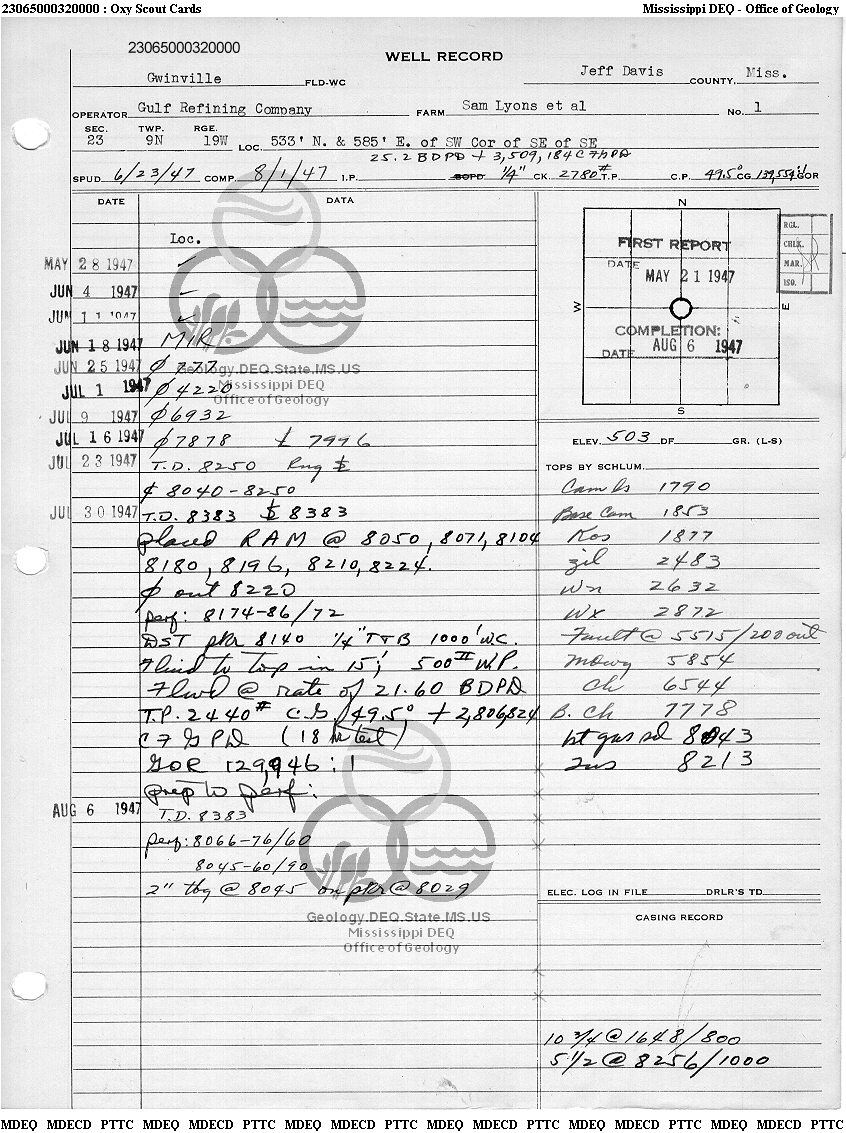 23065000320000 : Oxy Scout Cards
Mississippi DEQ - Office of Geology
23065000320000
WELL RECORD
Gwinville FLD-WC
Jeff Davis COUNTY, Miss.
OPERATOR Gulf Refining Company FARM Sam Lyons et al No. 1
SEC. 23 TWP. 9N RGE. 19W LOC. 533' N. & 585' E. of SW Cor of SE of SE
25.2 BDPD + 3,509,184 CFGPD
SPUD 6/23/47 COMP. 8/1/47 I.P. BOPD 1/4" CK. 2780# T.P. C.P. 49.5° CG 139,554:1 GOR
DATE DATA
Loc.
MAY 28 1947 ✓
JUN 4 1947 ✓
JUN 11 1947 ✓
JUN 18 1947 MIR
JUN 25 1947 ∅ 777
JUL 1 1947 ∅ 4220
JUL 9 1947 ∅ 6932
JUL 16 1947 ∅ 7878 7996
JUL 23 1947 T.D. 8250 Rng
8040-8250
JUL 30 1947 T.D. 8383 8383
placed RAM @ 8050, 8071, 8104
8180, 8196, 8210, 8224.
∅ out 8220
perf: 8174-86/72
DST pkr 8140 1/4" T&B 1000' WC.
Fluid to top in 15', 500# WP.
Flwd @ rate of 21.60 BDPD
T.P. 2440# C.G. 49.5° + 2,806,824
CFGPD (18 hr test)
GOR 129,946:1
prep to perf:
AUG 6 1947 T.D. 8383
perf: 8066-76/60
8045-60/90
2" tbg @ 8045 on pkr @ 8029
Geology.DEQ.State.MS.US
Mississippi DEQ
Office of Geology
Geology.DEQ.State.MS.US
Mississippi DEQ
Office of Geology
N
W
E
S
FIRST REPORT
DATE MAY 21 1947
COMPLETION:
DATE AUG 6 1947
RGL.
CHLK.
MAR.
ISO.
ELEV. 503 DF GR. (L-S)
TOPS BY SCHLUM.
Cam ls 1790
Base Cam 1853
Kos 1877
Zil 2483
Wn 2632
Wx 2872
Fault @ 5515/200 out
Mdwy 5854
Ch 6544
B. Ch 7778
1st gas sd 8043
Tus 8213
ELEC. LOG IN FILE DRLR'S TD
CASING RECORD
10 3/4 @ 1648/800
5 1/2 @ 8256/1000
MDEQ MDECD PTTC MDEQ MDECD PTTC MDEQ MDECD PTTC MDEQ MDECD PTTC MDEQ MDECD PTTC MDEQ MDECD PTTC